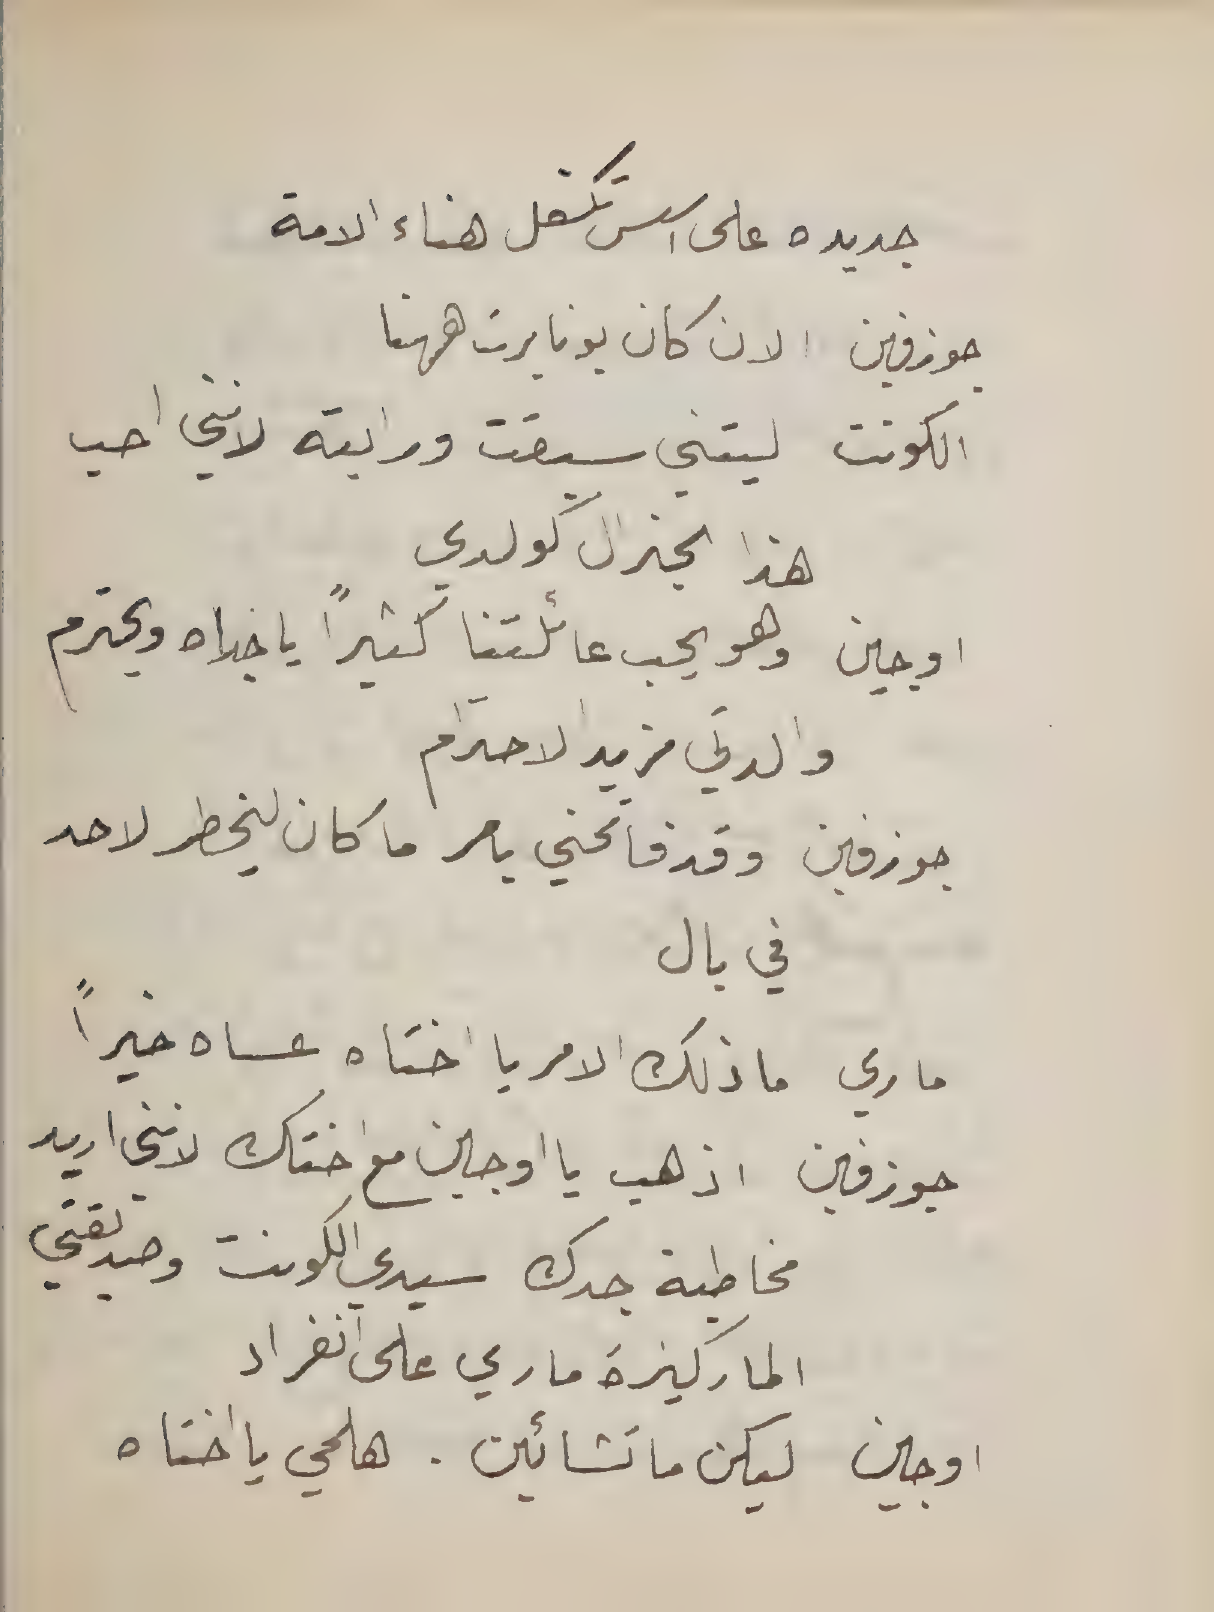 جديده على اسس تكفل هناء الامة
جوزفين الان كان بونابرت ههنا
الكونت ليتني سبقت ورايته لانني احب
هذا الجنرال كولدي
اوجين وهو يحب عائلتنا كثيراً يا جداه ويحترم
والدتي مزيد الاحترام
جوزفين وقد فاتحني بامر ما كان ليخطر لاحد
في بال
ماري ما ذلك الامر يا اختاه عساه خيراً
جوزفين اذهب يا اوجين مع اختك لانني اريد
مخاطبة جدك سيدي الكونت وصديقتي
الماركيزة ماري على انفراد
اوجين ليكن ما تشائين . هلمي يا اختاه